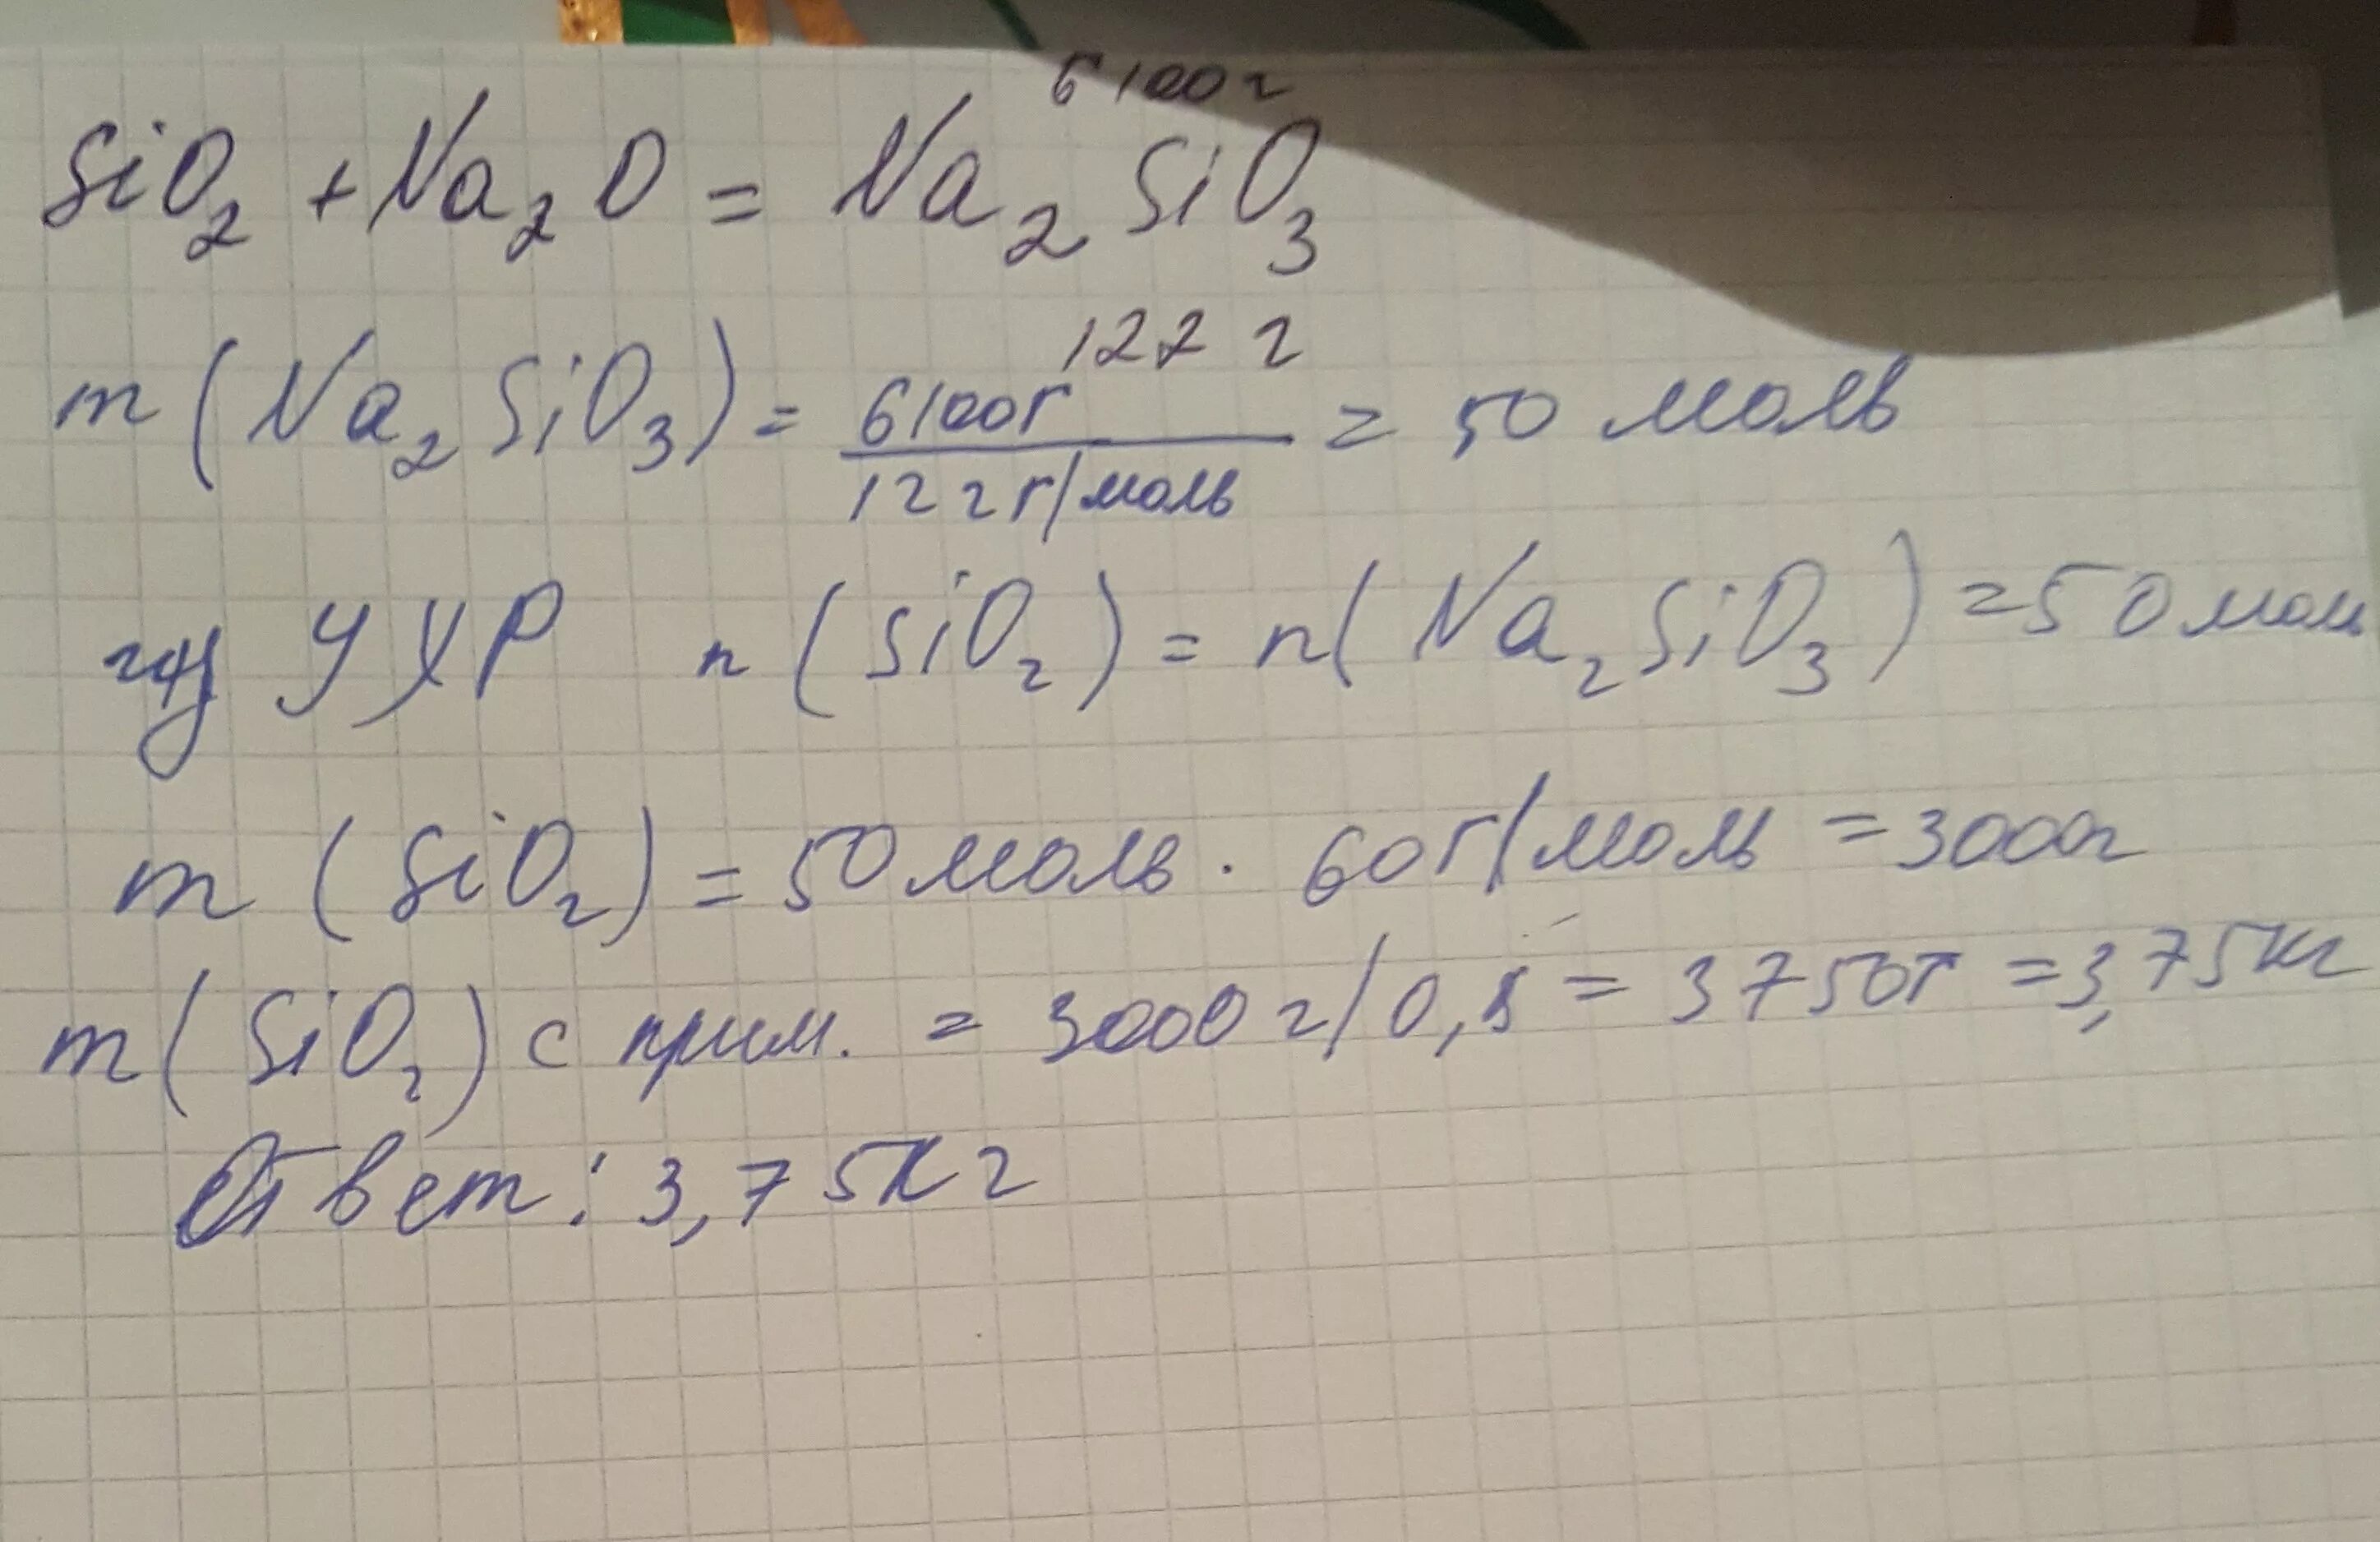 6100г
SiO2 + Na2O = Na2SiO3
122 г
m(Na2SiO3) = 6100г / 122г/моль = 50 моль
УХР n(SiO2) = n(Na2SiO3) = 50 моль
m(SiO2) = 50 моль · 60г/моль = 3000г
m(SiO2) с прим. = 3000 г/0,8 = 3750г = 3,75кг
Ответ: 3,75кг